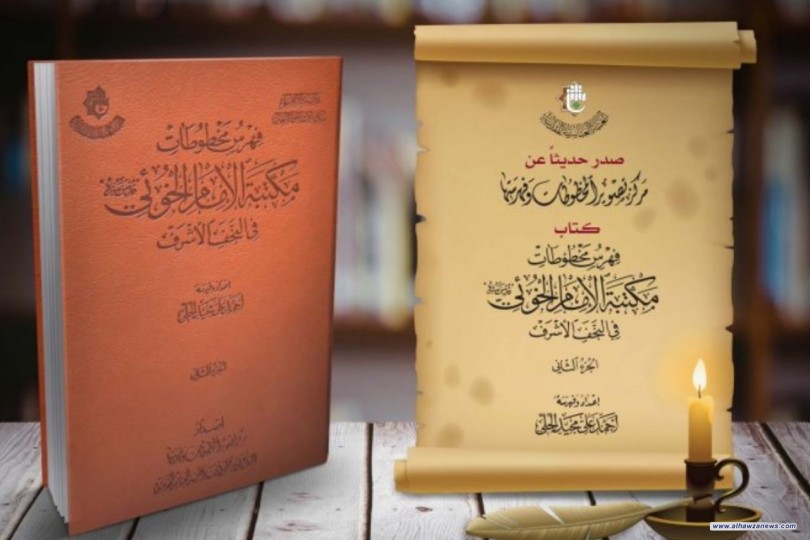 فهرس مخطوطات
مكتبة الإمام الخوئي
في النجف الأشرف
إعداد وفهرسة
أحمد علي مجيد الحلي
صدر حديثاً عن
مركز تصوير المخطوطات وفهرستها
كتاب
فهرس مخطوطات
مكتبة الإمام الخوئي
في النجف الأشرف
الجزء الثاني
إعداد وفهرسة
أحمد علي مجيد الحلي
www.alhawzanews.com